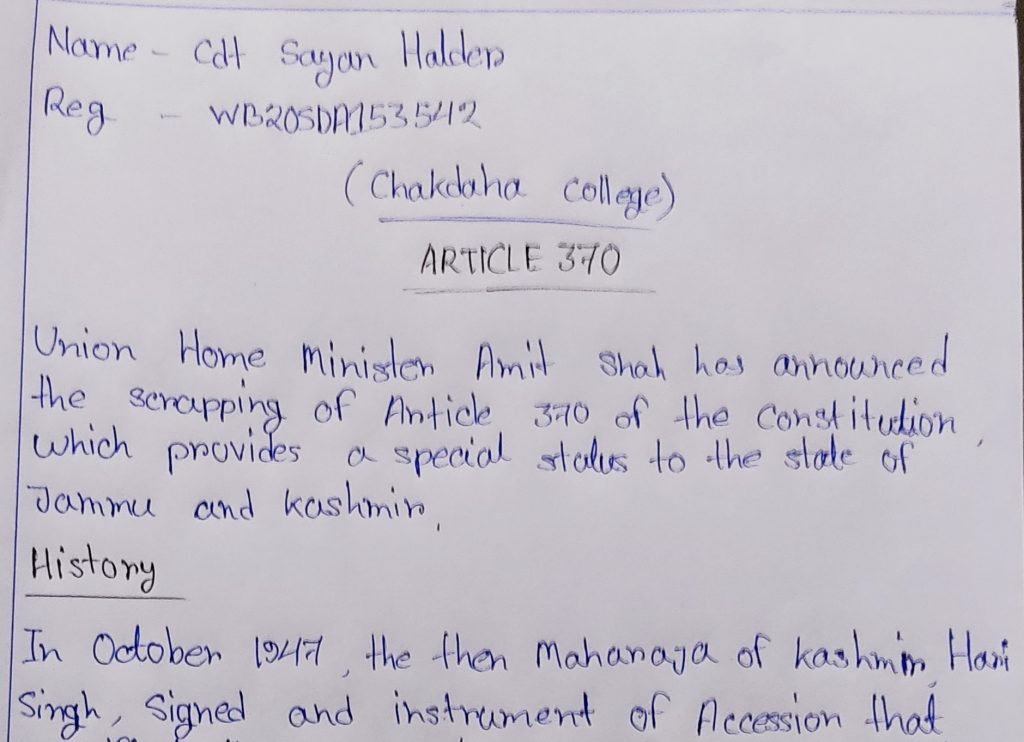 Name - Cdt Sayan Halder
Reg - WB20SDA153542
(Chakdaha College)
ARTICLE 370
Union Home Minister Amit Shah has announced
the scrapping of Article 370 of the Constitution,
which provides a special status to the state of
Jammu and Kashmir,
History
In October 1947, the then Maharaja of kashmir, Hari
Singh, Signed and instrument of Accession that